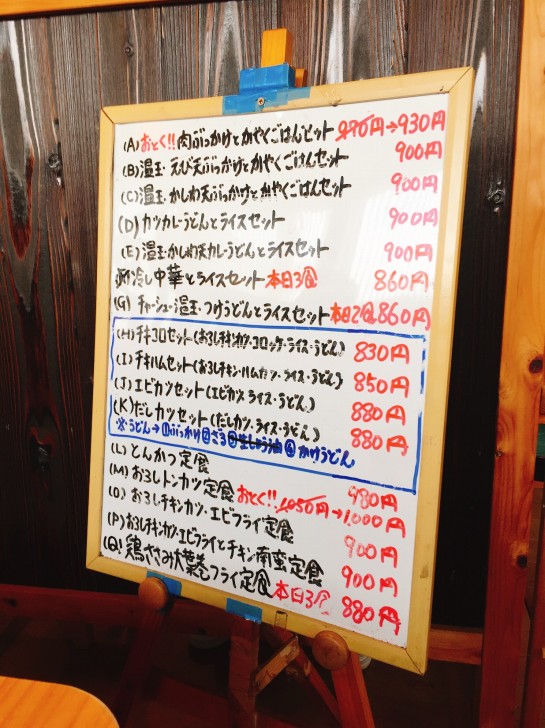 (A)おとく!!肉ぶっかけとかやくごはんセット 970円→930円
(B)温玉・えび天ぶっかけとかやくごはんセット 900円
(C)温玉・かしわ天ぶっかけとかやくごはんセット 900円
(D)カツカレーうどんとライスセット 900円
(E)温玉・かしわ天カレーうどんとライスセット 900円
冷し中華とライスセット 本日3食 860円
(G)チャーシュー・温玉・つけうどんとライスセット 本日2食 860円
(H)チキコロセット(おろしチキンカツ・コロッケ・ライス・うどん) 830円
(I)チキハムセット(おろしチキン・ハムカツ・ライス・うどん) 850円
(J)エビカツセット(エビカツ・ライス・うどん) 880円
(K)だしカツセット(だしカツ・ライス・うどん) 880円
※うどん→①ぶっかけ②ざる③生しょうゆ④かけうどん
(L)とんかつ定食 980円
(M)おろしトンカツ定食 おとく!! 1050円→1,000円
(O)おろしチキンカツ・エビフライ定食 900円
(P)おろしチキンカツ・エビフライとチキン南蛮定食 900円
(Q)鶏ささみ大葉巻フライ定食 本日3食 880円